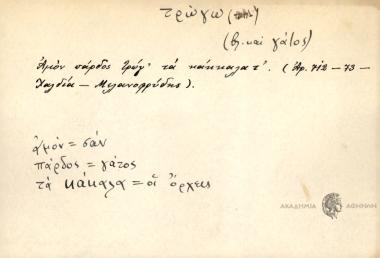 τρώγω
(βλ. καί γάτος)
Ἀμόν πάρδος τρώγ' τά κάκαλα τ'. (Ἀρ. 712 – 73 –
Χαλδία – Μελανοφρύδης).
ἀμόν = σάν
πάρδος = γάτος
τά κάκαλα = οἱ ὄρχεις
ΑΚΑΔΗΜΙΑ ΑΘΗΝΩΝ